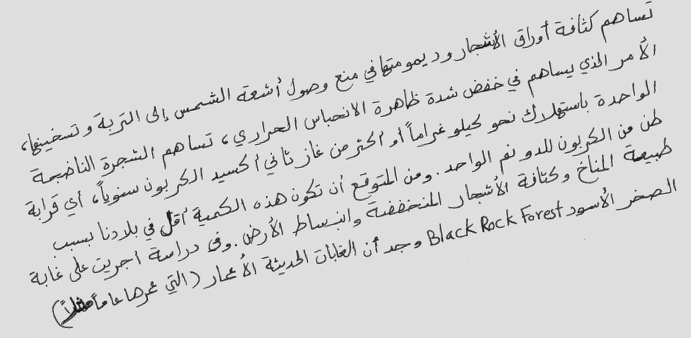 تساهم كثافة أوراق الأشجار وديمومتها في منع وصول أشعة الشمس إلى التربة وتسخينها،
الأمر الذي يساهم في خفض شدة ظاهرة الانحباس الحراري، تساهم الشجرة الناضجة
الواحدة باستهلاك نحو كيلو غراماً أو اكثر من غاز ثاني أكسيد الكربون سنوياً، أي قرابة
طن من الكربون للدونم الواحد. ومن المتوقع أن تكون هذه الكمية أقل في بلادنا بسبب
طبيعة المناخ وكثافة الأشجار المنخفضة وانبساط الأرض. وفي دراسة اجريت على غابة
الصخر الأسود Black Rock Forest وجد أن الغابات الحديثة الأعمار (التي عمرها عاماً مثلاً)